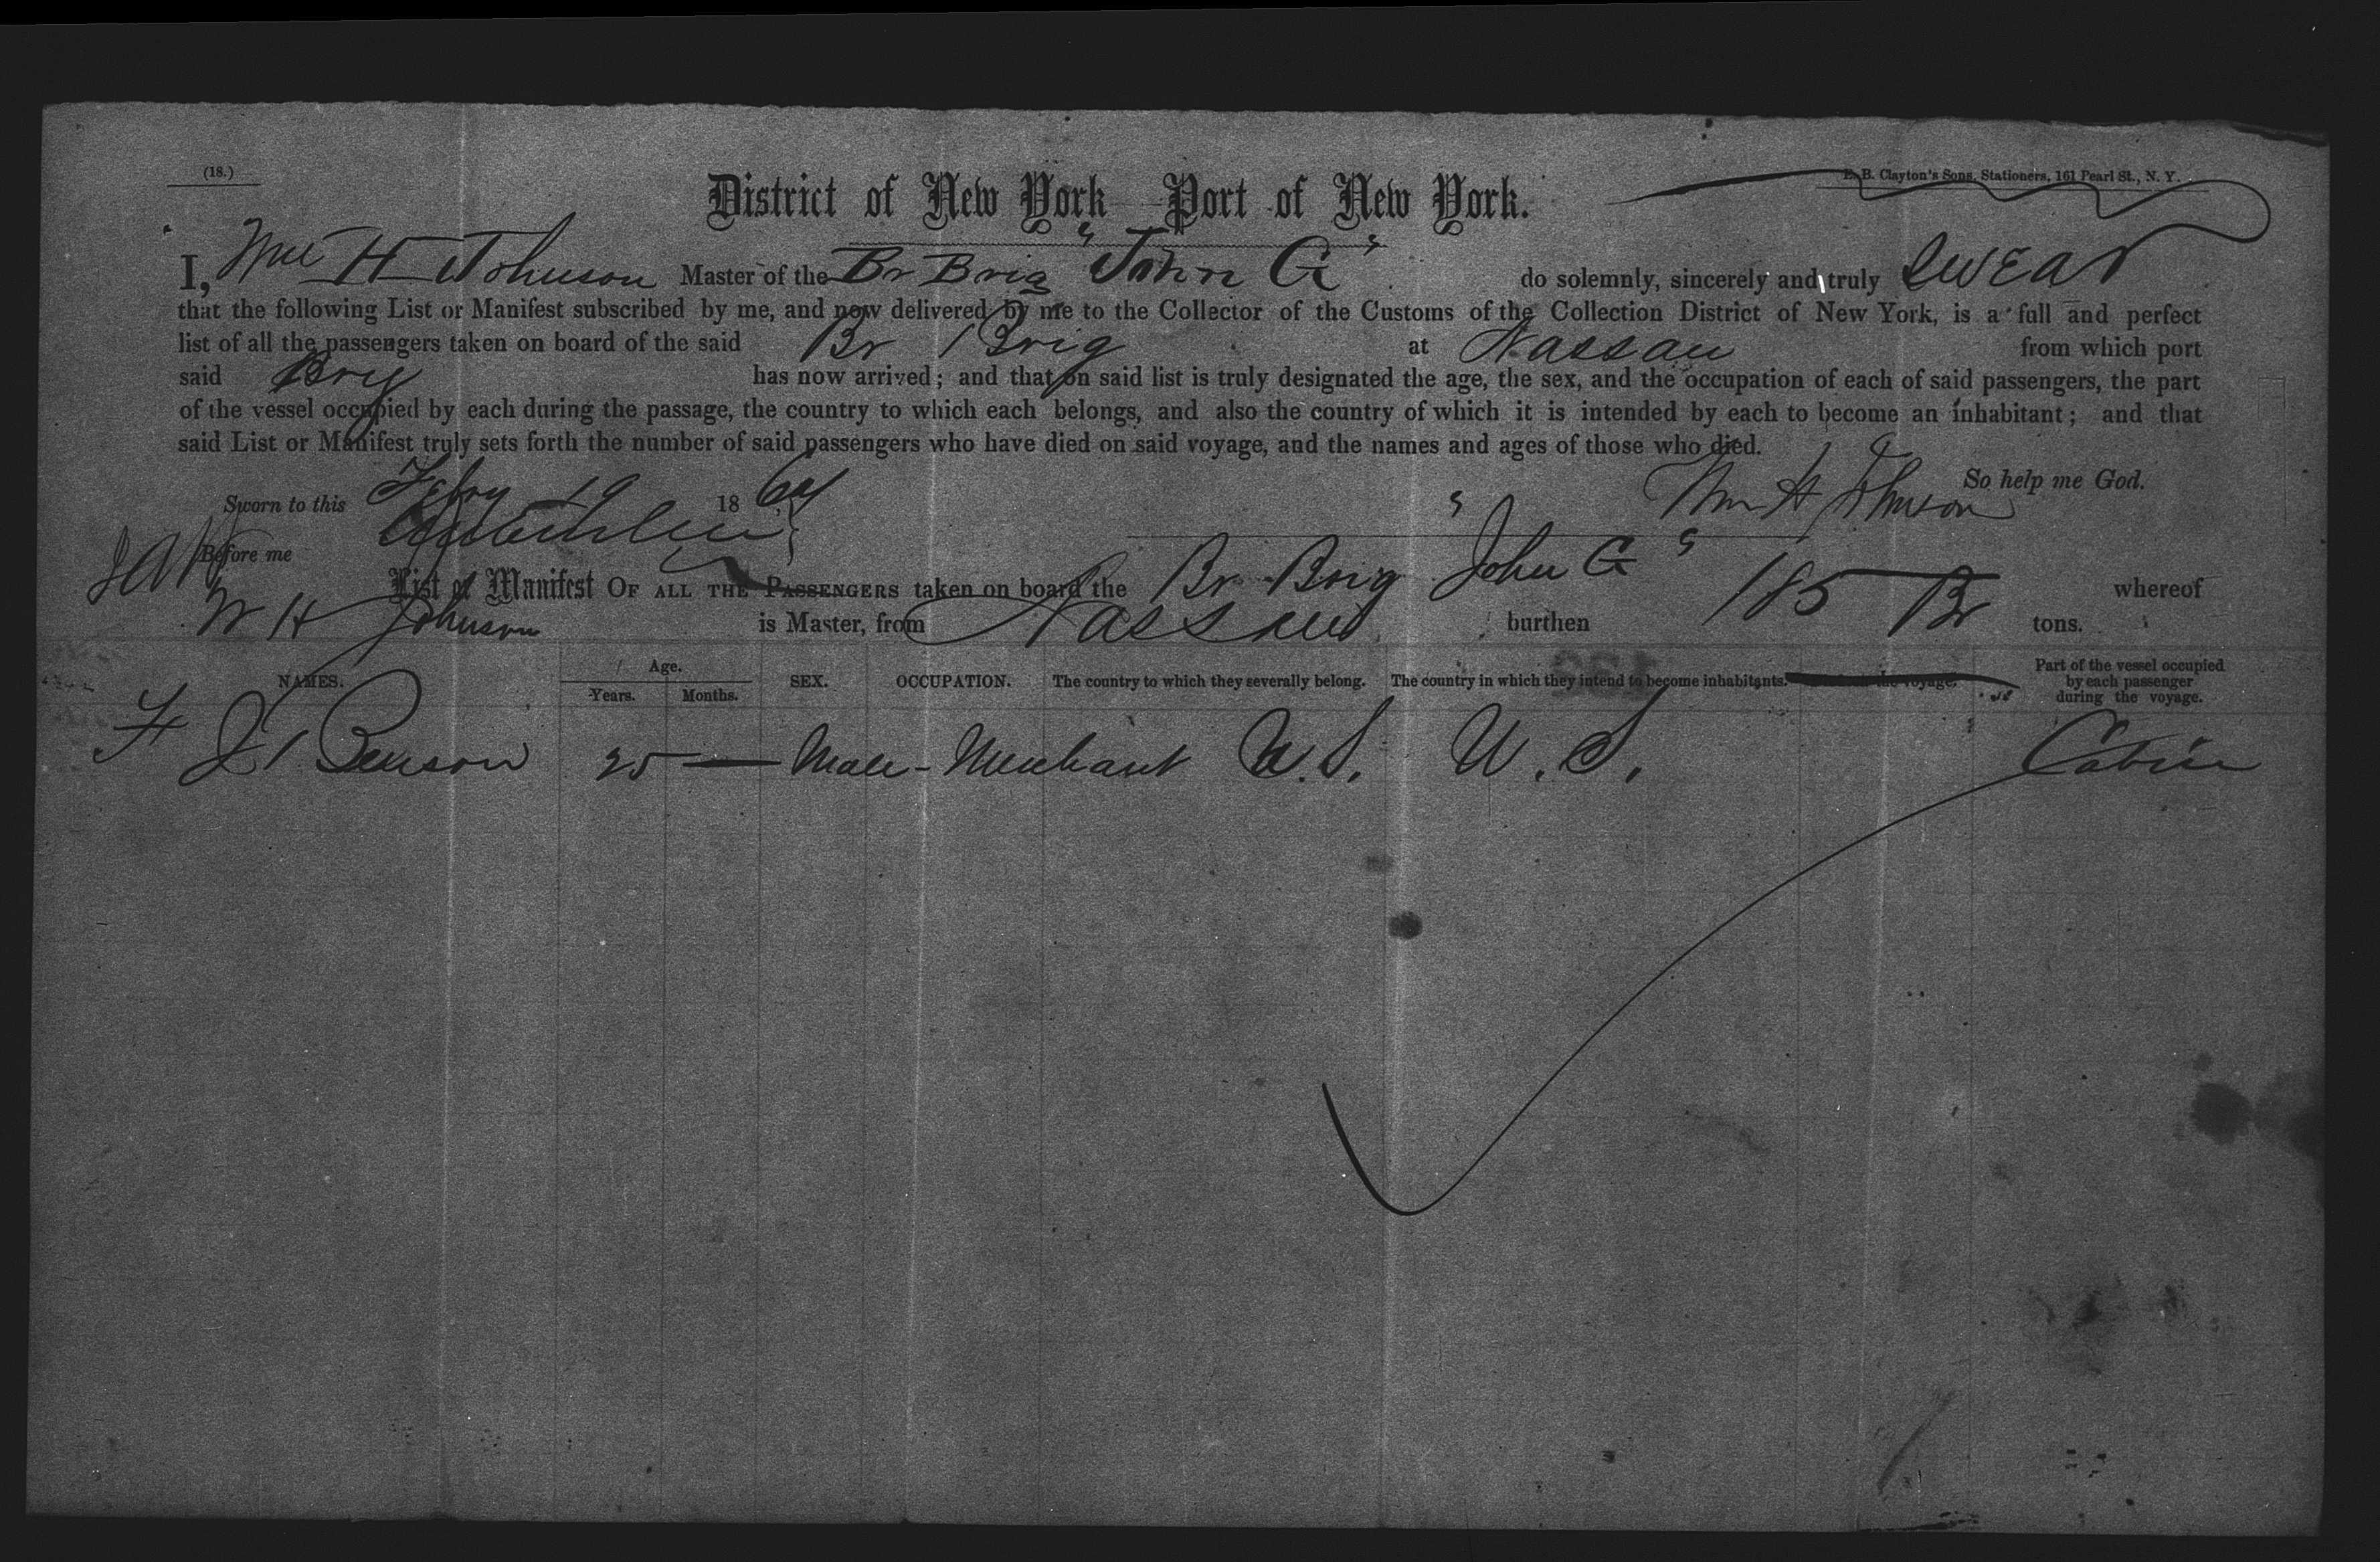 (18.)
E. B. Clayton's Sons, Stationers, 161 Pearl St., N. Y.
District of New York Port of New York.
I, Wm H Johnson Master of the Br Brig "John G" do solemnly, sincerely and truly swear
that the following List or Manifest subscribed by me, and now delivered by me to the Collector of the Customs of the Collection District of New York, is a full and perfect
list of all the passengers taken on board of the said Br Brig at Nassau from which port
said Brig has now arrived; and that on said list is truly designated the age, the sex, and the occupation of each of said passengers, the part
of the vessel occupied by each during the passage, the country to which each belongs, and also the country of which it is intended by each to become an inhabitant; and that
said List or Manifest truly sets forth the number of said passengers who have died on said voyage, and the names and ages of those who died.
So help me God.
Sworn to this Feby 19 1864 Wm H Johnson
Before me
List or Manifest OF ALL THE PASSENGERS taken on board the Br Brig "John G" whereof
W H Johnson is Master, from Nassau burthen 185 tons.
NAMES. Age. Years. Months. SEX. OCCUPATION. The country to which they severally belong. The country in which they intend to become inhabitants. the voyage. Part of the vessel occupied by each passenger during the voyage.
Benson 25 — Male - Merchant U.S. U.S. Cabin